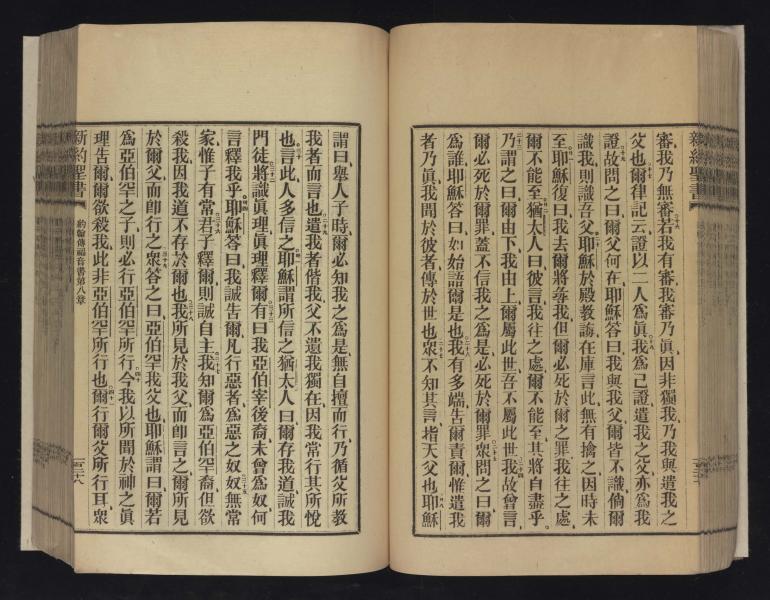 新約聖書
審我乃無審若我有審我審乃眞因非獨我乃我與遣我之
父也爾律記云證以二人爲眞我爲己證遣我之父亦爲我
證故問之曰爾父何在耶穌答曰我與我父爾皆不識倘爾
識我則識吾父耶穌於殿教誨在庫言此無有擒之因時未
至耶穌復曰我去爾將尋我但爾必死於爾之罪我往之處
爾不能至猶太人曰彼言我往之處爾不能至其將自盡乎
乃謂之曰爾由下我由上爾屬此世吾不屬此世我故曾言
爾必死於爾罪蓋不信我之爲是必死於爾罪衆問之曰爾
爲誰耶穌答曰如始語爾是也我有多端告爾責爾惟遣我
者乃眞我聞於彼者傳於世也衆不知其言指天父也耶穌
謂曰舉人子時爾必知我之爲是無自擅而行乃循父所教
我者而言也遣我者偕我父不遺我獨在因我常行其所悅
也言此人多信之耶穌謂所信之猶太人曰爾存我道誠我
門徒將識眞理眞理釋爾有曰我亞伯宰後裔未曾爲奴何
言釋我乎耶穌答曰我誠告爾凡行惡者爲惡之奴奴無常
家惟子有常君子釋爾則誠自主我知爾爲亞伯罕裔但欲
殺我因我道不存於爾也我所見於我父而卽言之爾所見
於爾父而卽行之衆答之曰亞伯罕我父也耶穌謂曰爾若
爲亞伯罕之子則必行亞伯罕所行今我以所聞於神之眞
理告爾爾欲殺我此非亞伯罕所行也爾行爾父所行耳衆
新約聖書
約翰傳福音書第八章